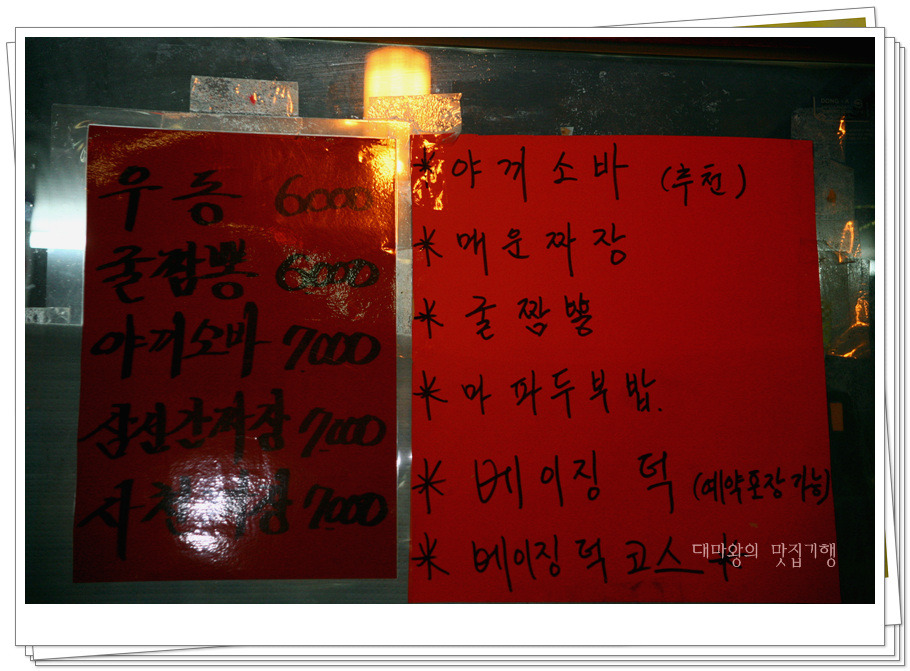 우동 6000
굴짬뽕 6000
야끼소바 7000
삼선간짜장 7000
사천짜장 7000
* 야끼소바 (추천)
* 매운짜장
* 굴짬뽕
* 마파두부밥.
* 베이징 덕 (예약포장가능)
* 베이징덕 코스
대마왕의 맛집기행